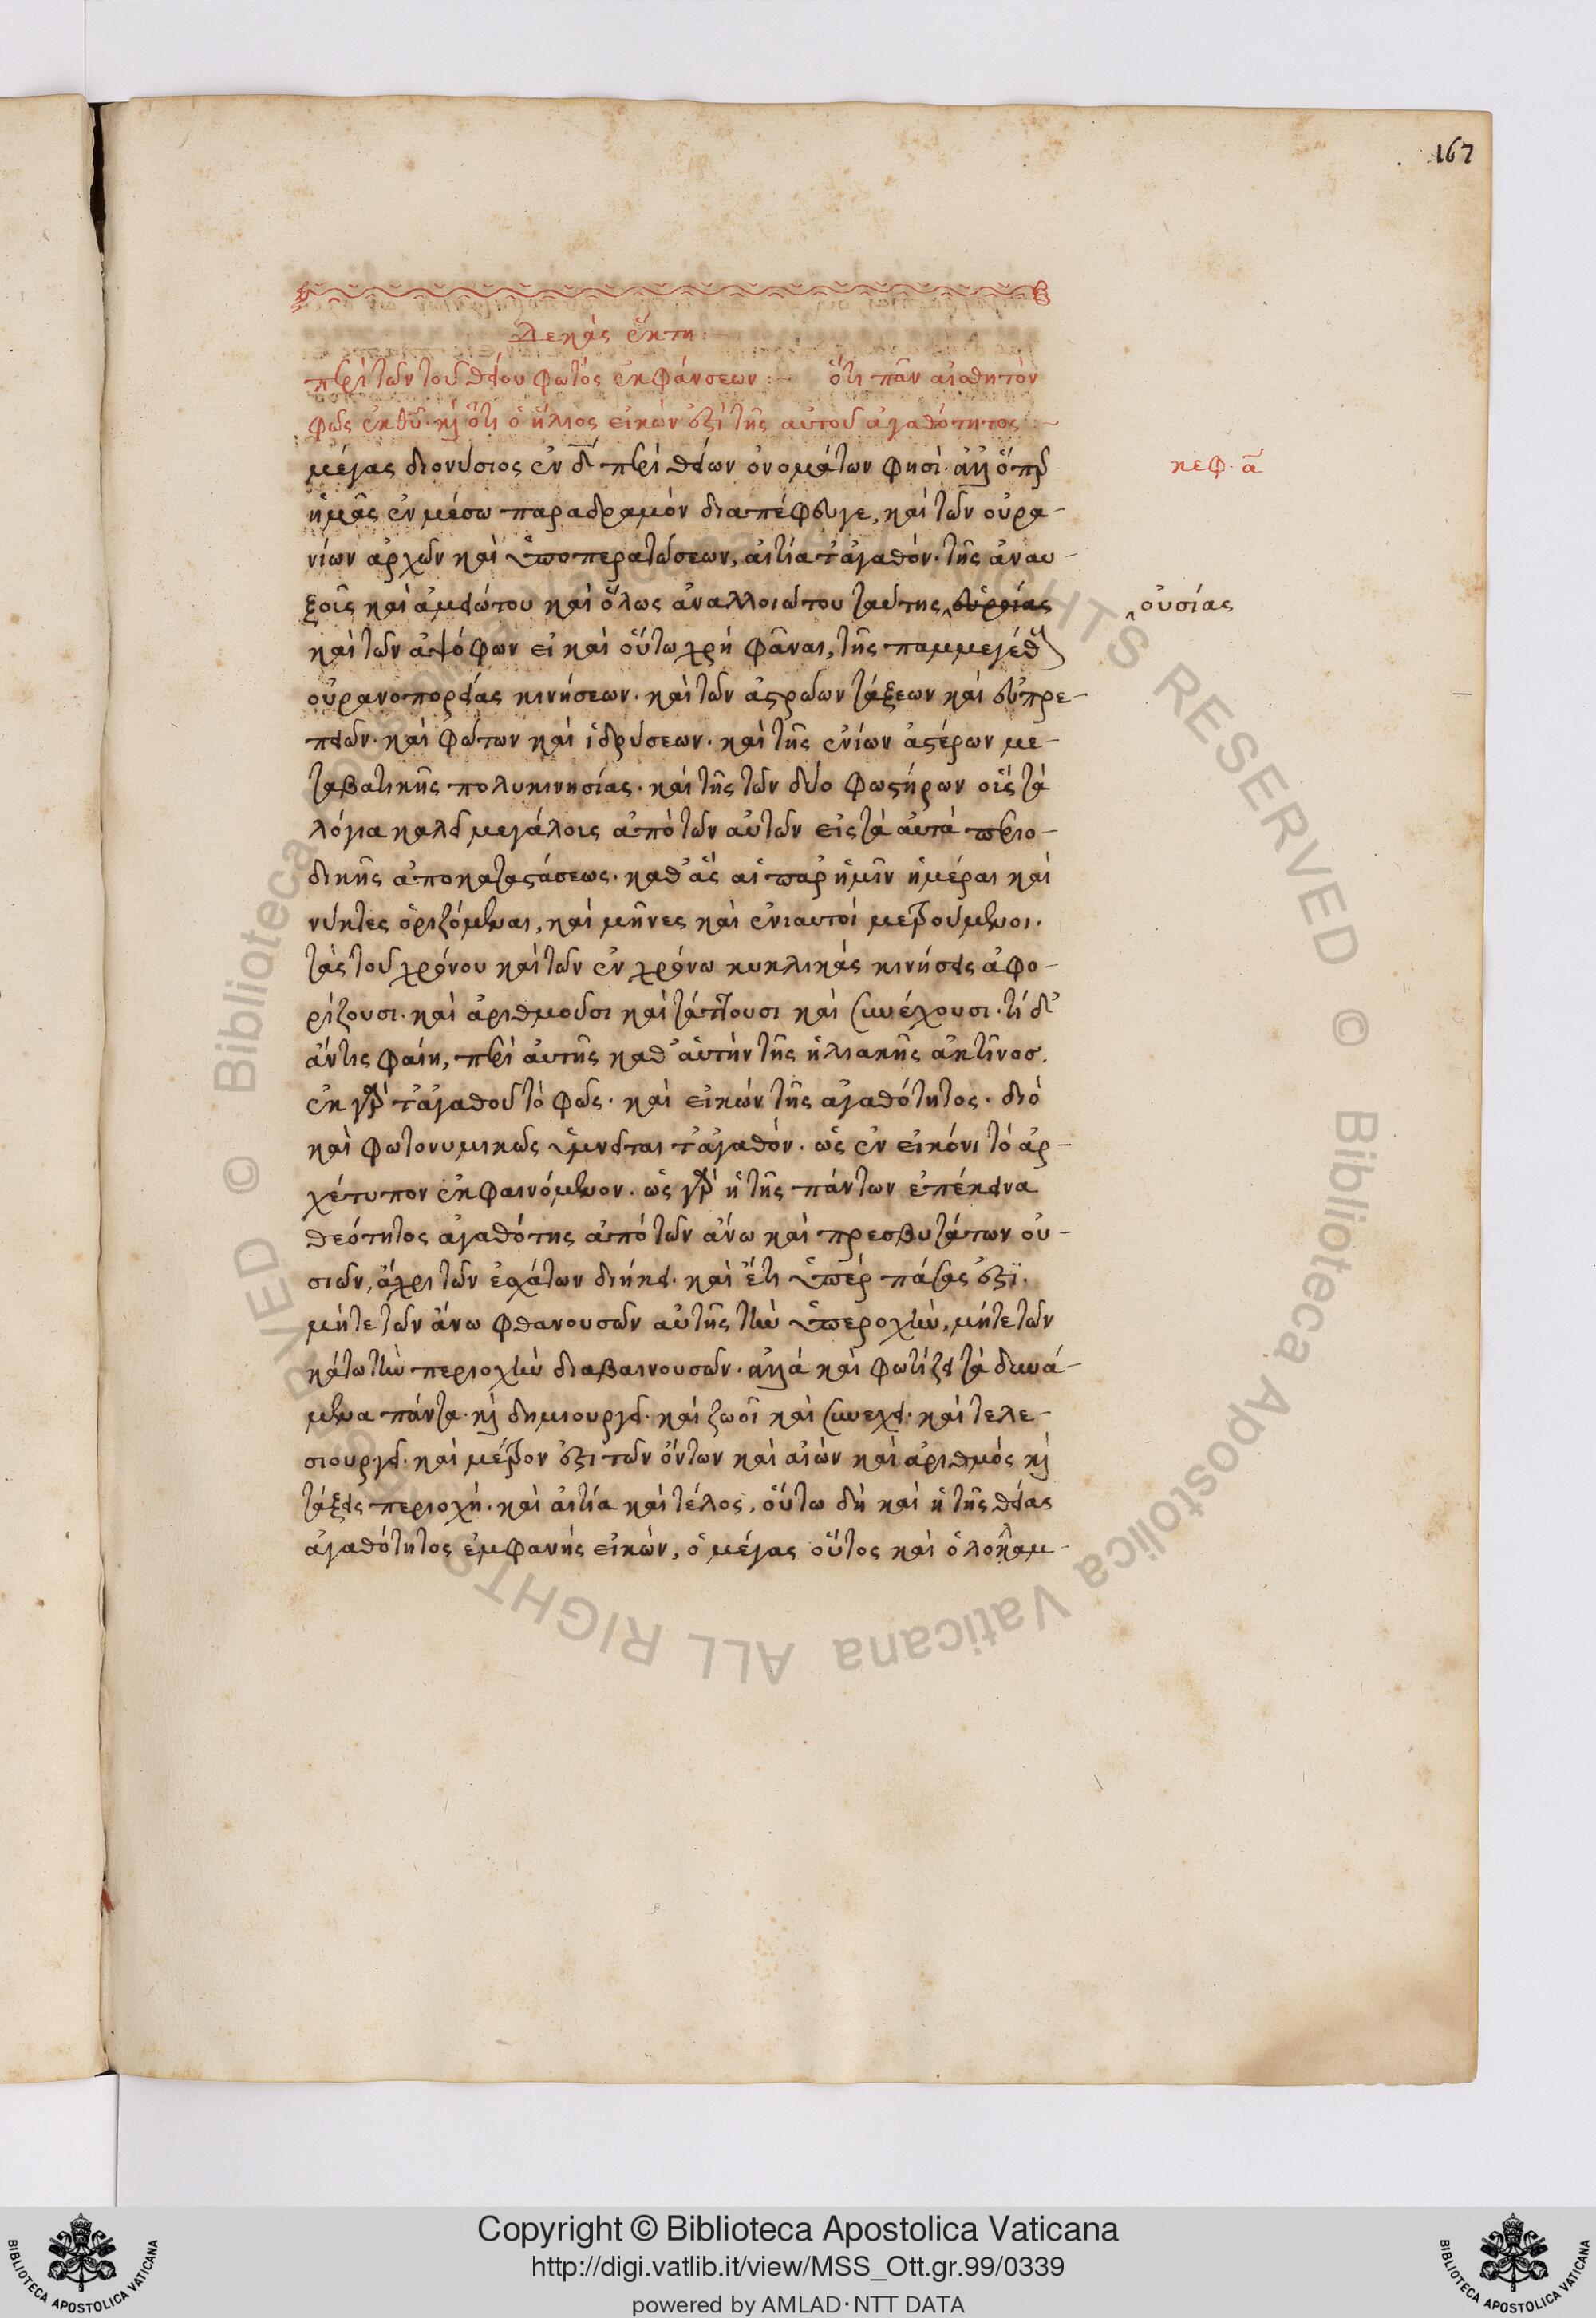 167
Δεκὰς ἕκτη:
περὶ τῶν τοῦ θείου φωτὸς ἐκφάνσεων:~ ὅτι πᾶν αἰσθητὸν
φῶς ἐκ θυ. κὶ ὅτι ὁ ἥλιος εἰκών ἐστὶ τῆς αὐτοῦ ἀγαθότητος:~
μέγας διονύσιος ἐν δ περὶ θείων ὀνομάτων φησὶ. ἀλλ' ὅπερ
κεφ. α
ἡμᾶς ἐν μέσω παραδραμὸν διαπέφευγε, καὶ τῶν οὐρα-
νίων ἀρχῶν καὶ ὑποπερατώσεων, αἰτία τἀγαθόν. τῆς ἀναυ-
ξοῦς καὶ ἀμειώτου καὶ ὅλως ἀναλλοιώτου ταύτης
οὐσίας
καὶ τῶν ἀψόφων εἰ καὶ οὕτω χρὴ φᾶναι, τῆς παμμεγέθους
οὐρανοπορείας κινήσεων. καὶ τῶν ἀστρώων τάξεων καὶ εὐπρε-
πειῶν. καὶ φώτων καὶ ἱδρύσεων. καὶ τῆς ἐνίων ἀστέρων με-
ταβατικῆς πολυκινησίας. καὶ τῆς τῶν δύο φωστήρων οὓς τὰ
λόγια καλεῖ μεγάλοις ἀπὸ τῶν αὐτῶν εἰς τὰ αὐτὰ περιο-
δικῆς ἀποκαταστάσεως. καθ' ἃς αἱ παρ' ἡμῖν ἡμέραι καὶ
νύκτες ὁριζόμεναι, καὶ μῆνες καὶ ἐνιαυτοὶ μετρούμενοι.
τὰς τοῦ χρόνου καὶ τῶν ἐν χρόνω κυκλικὰς κινήσεις ἀφο-
ρίζουσι. καὶ ἀριθμοῦσι καὶ τάττουσι καὶ συνέχουσι. τί δ'
ἄν τις φαίη, περὶ αὐτῆς καθ' αὑτὴν τῆς ἡλιακῆς ἀκτῖνος.
ἐκ γὰρ τἀγαθοῦ τὸ φῶς. καὶ εἰκὼν τῆς ἀγαθότητος. διὸ
καὶ φωτονυμικῶς ὑμνεῖται τἀγαθόν. ὡς ἐν εἰκόνι τὸ ἀρ-
χέτυπον ἐκφαινόμενον. ὡς γὰρ ἡ τῆς πάντων ἐπέκεινα
θεότητος ἀγαθότης ἀπὸ τῶν ἄνω καὶ πρεσβυτάτων οὐ-
σιῶν, ἄχρι τῶν ἐσχάτων διήκει. καὶ ἔτι ὑπὲρ πάσας ἐστὶ.
μήτε τῶν ἄνω φθανουσῶν αὐτῆς τὴν ὑπεροχὴν, μήτε τῶν
κάτω τὴν περιοχὴν διαβαινουσῶν. ἀλλὰ καὶ φωτίζει τὰ δυνά-
μενα πάντα. κὶ δημιουργεῖ. καὶ ζωοῖ καὶ συνεχει. καὶ τελε-
σιουργεῖ. καὶ μέτρον ἐστὶ τῶν ὄντων καὶ αἰὼν καὶ ἀριθμὸς κὶ
τάξεις περιοχὴ. καὶ αἰτία καὶ τέλος. οὕτω δὴ καὶ ἡ τῆς θείας
ἀγαθότητος ἐμφανὴς εἰκὼν, ὁ μέγας οὗτος καὶ ὁλολαμ-
Copyright © Biblioteca Apostolica Vaticana
http://digi.vatlib.it/view/MSS_Ott.gr.99/0339
powered by AMLAD·NTT DATA